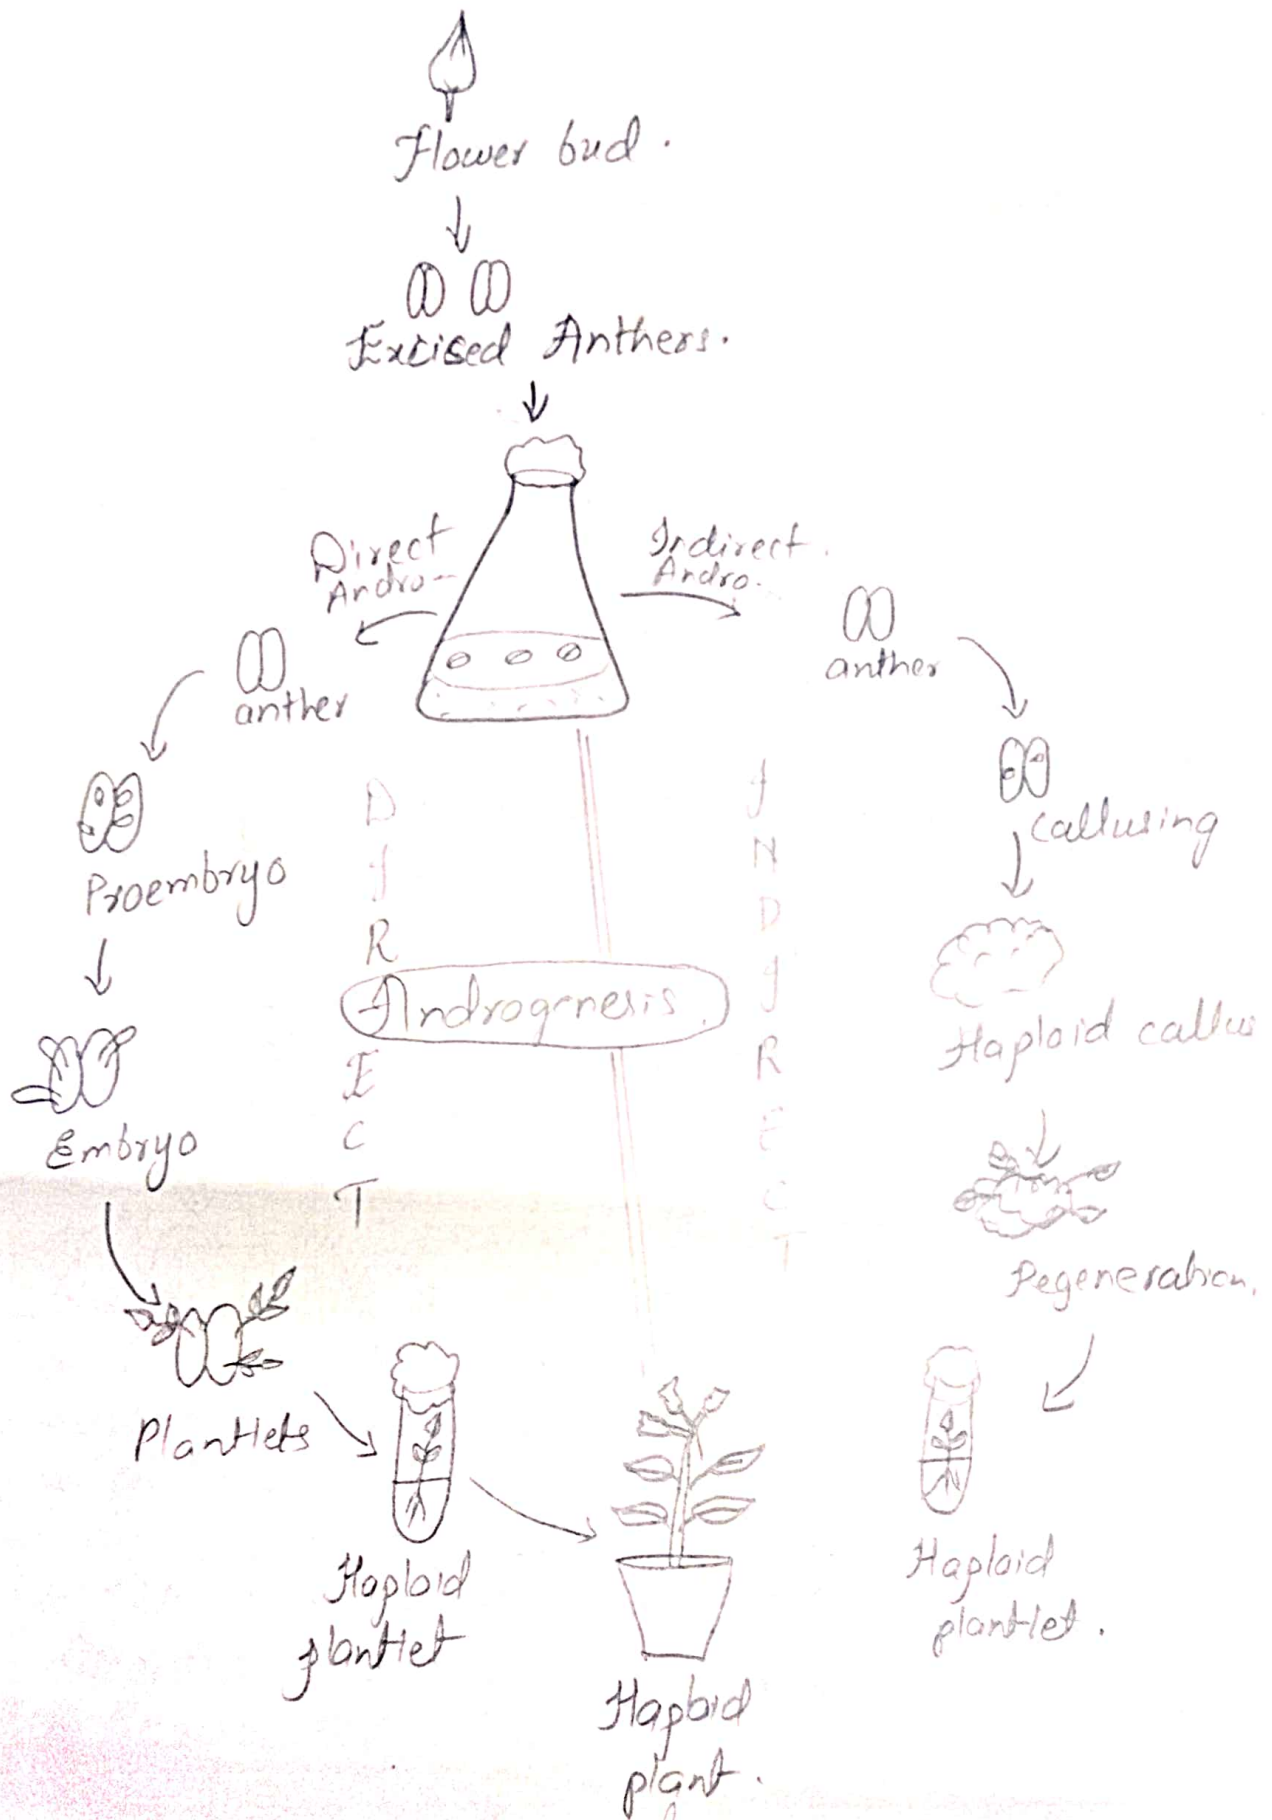 Flower bud.
Excised Anthers.
Direct
Andro--
Indirect.
Andro..
anther
anther
Proembryo
Callusing
DIRECT
INDIRECT
Androgenesis.
Haploid callus
Embryo
Regeneration.
Plantlets
Haploid
plantlet
Haploid
plantlet.
Haploid
plant.